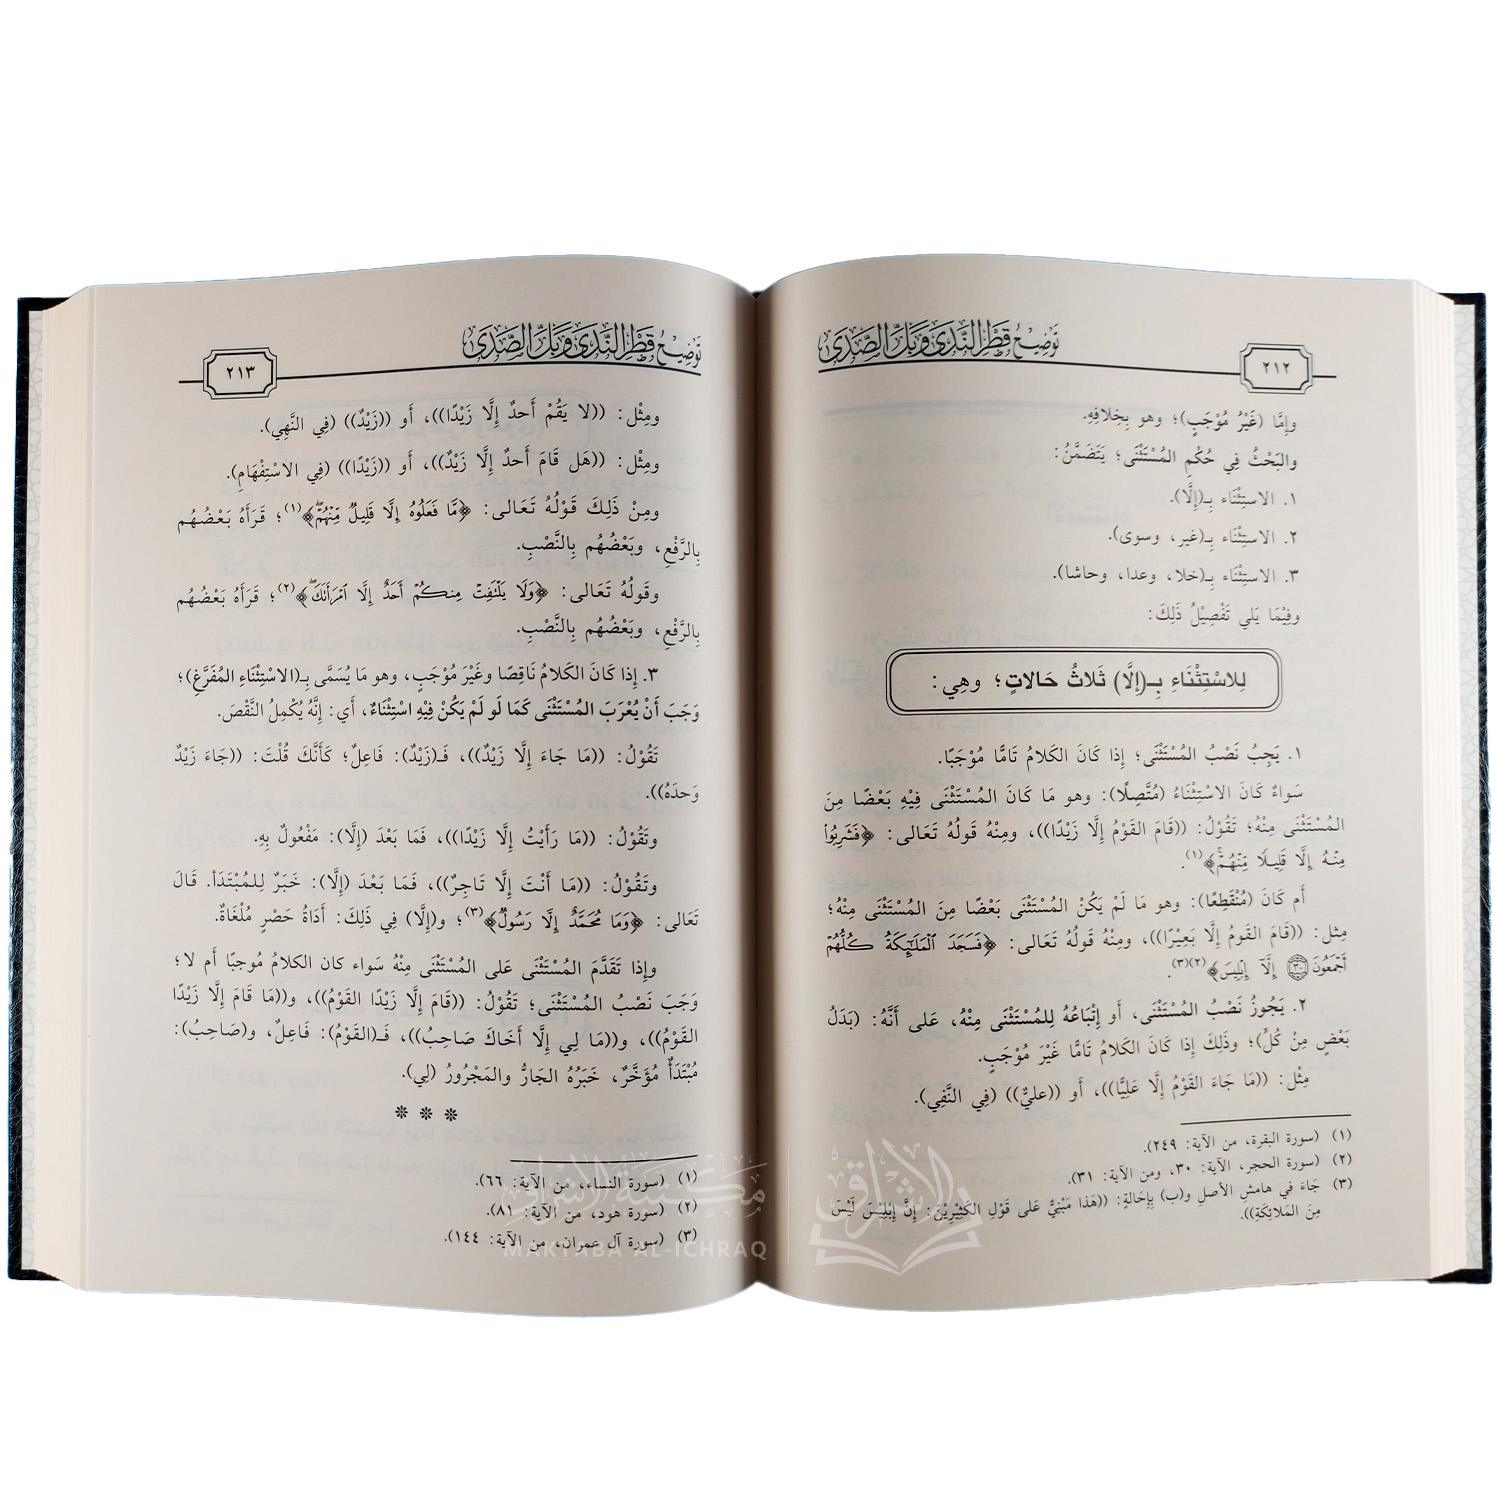 توضيح قطر الندى وبل الصدى
٢١٢
وإِمَّا (غَيْرُ مُوْجَبٍ)؛ وهو بِخِلافِهِ.
والبَحْثُ فِي حُكْمِ المُسْتَثْنَى؛ يَتَضَمَّنُ:
١. الاستِثْنَاء بـ(إِلَّا).
٢. الاستِثْنَاء بـ(غير، وسوى).
٣. الاستِثْنَاء بـ(خلا، وعدا، وحاشا).
وفِيْمَا يَلي تَفْصِيْلُ ذَلِكَ:
لِلاسْتِثْنَاءِ بِـ(إلَّا) ثَلاثُ حَالاتٍ؛ وهِي:
١. يَجِبُ نَصْبُ المُسْتَثْنَى؛ إِذا كَانَ الكَلامُ تَامًّا مُوْجَبًا.
سَواءٌ كَانَ الاسْتِثْنَاءُ (مُتَّصِلًا): وهو مَا كَانَ المُسْتَثْنَى فِيْهِ بَعْضًا مِنَ
المُسْتَثْنَى مِنْهُ؛ تَقُوْلُ: ((قَامَ القَوْمُ إِلَّا زَيْدًا))، ومِنْهُ قَولُهُ تَعَالى: ﴿فَشَرِبُوا۟
مِنْهُ إِلَّا قَلِيلًا مِّنْهُمْ﴾(١).
أم كَانَ (مُنْقَطِعًا): وهو مَا لَمْ يَكُنْ المُسْتَثْنَى بَعْضًا مِنَ المُسْتَثْنَى مِنْهُ؛
مِثل: ((قَامَ القَومُ إِلَّا بَعِيْرًا))، ومِنْهُ قَولُهُ تَعَالى: ﴿فَسَجَدَ الْمَلَـٰٓئِكَةُ كُلُّهُمْ
أَجْمَعُونَ ٣٠ إِلَّآ إِبْلِيسَ﴾(٢)(٣).
٢. يَجُوزُ نَصْبُ المُسْتَثْنَى، أو إِتْبَاعُهُ لِلمُسْتَثْنَى مِنْهُ، عَلى أَنَّهُ: (بَدَلُ
بَعْضٍ مِنْ كُلٍّ)؛ وذَلِكَ إِذا كَانَ الكَلامُ تَامًّا غَيْرَ مُوْجَبٍ.
مِثْل: ((مَا جَاءَ القَوْمُ إِلَّا عَلِيًّا))، أو ((عليٌّ)) (فِي النَّفْي).
(١) (سورة البقرة، من الآية: ٢٤٩).
(٢) (سورة الحجر، الآية: ٣٠، ومن الآية: ٣١).
(٣) جَاءَ في هامشِ الأصلِ و(ب) بِإِحَالةٍ: ((هَذا مَبْنيٌّ عَلى قَوْلِ الكَثِيْرِيْنَ: إِنَّ إِبْلِيْسَ لَيْسَ
مِنَ المَلائِكَةِ)).
توضيح قطر الندى وبل الصدى
٢١٣
ومِثْل: ((لا يَقُمْ أَحدٌ إِلَّا زَيْدًا))، أو ((زَيْدٌ)) (فِي النَّهِي).
ومِثْل: ((هَل قَامَ أَحدٌ إِلَّا زَيْدٌ))، أو ((زَيْدًا)) (فِي الاسْتِفْهَامِ).
ومِنْ ذَلِكَ قَوْلُهُ تَعَالى: ﴿مَّا فَعَلُوهُ إِلَّا قَلِيلٌ مِّنْهُمْ﴾(١)؛ قَرَأَهُ بَعْضُهُم
بِالرَّفْعِ، وبَعْضُهُم بِالنَّصْبِ.
وقَولُهُ تَعَالى: ﴿وَلَا يَلْتَفِتْ مِنكُمْ أَحَدٌ إِلَّا امْرَأَتَكَ﴾(٢)؛ قَرَأَهُ بَعْضُهُم
بِالرَّفْعِ، وبَعْضُهُم بِالنَّصْبِ.
٣. إِذا كَانَ الكَلامُ نَاقِصًا وغَيْرَ مُوْجَبٍ، وهو مَا يُسَمَّى بِـ(الاسْتِثْنَاءِ المُفَرَّغِ)؛
وَجَبَ أَنْ يُعْرَبَ المُسْتَثْنَى كَمَا لَو لَمْ يَكُنْ فِيْهِ اسْتِثْنَاءٌ، أي: إِنَّهُ يُكْمِلُ النَّقْصَ.
تَقُوْلُ: ((مَا جَاءَ إِلَّا زَيْدٌ))، فَـ(زَيْدٌ): فَاعِلٌ؛ كَأَنَّكَ قُلْتَ: ((جَاءَ زَيْدٌ
وَحدَهُ)).
وتَقُوْلُ: ((مَا رَأَيْتُ إِلَّا زَيْدًا))، فَمَا بَعْدَ (إِلَّا): مَفْعُولٌ بِهِ.
وتَقُوْلُ: ((مَا أَنْتَ إِلَّا تَاجِرٌ))، فَمَا بَعْدَ (إِلَّا): خَبَرٌ لِلمُبْتَدَأ. قَالَ
تَعَالى: ﴿وَمَا مُحَمَّدٌ إِلَّا رَسُولٌ﴾(٣)؛ و(إِلَّا) فِي ذَلِكَ: أَدَاةُ حَصْرٍ مُلْغَاةٌ.
وإِذا تَقَدَّمَ المُسْتَثْنَى عَلى المُسْتَثْنَى مِنْهُ سَواء كان الكلامُ مُوجبًا أم لا؛
وَجَبَ نَصْبُ المُسْتَثْنَى؛ تَقُوْلُ: ((قَامَ إِلَّا زَيْدًا القَوْمُ))، و((مَا قَامَ إِلَّا زَيْدًا
القَوْمُ))، و((مَا لِي إِلَّا أَخَاكَ صَاحِبٌ))، فَـ(القَوْمُ): فَاعِلٌ، و(صَاحِبٌ):
مُبْتَدَأٌ مُؤَخَّرٌ، خَبَرُهُ الجَارُّ والمَجْرُورُ (لِي).
* * *
(١) (سورة النساء، من الآية: ٦٦).
(٢) (سورة هود، من الآية: ٨١).
(٣) (سورة آل عمران، من الآية: ١٤٤).
مكتبة الإشراق
MAKTABA AL-ICHRAQ
الإشراق